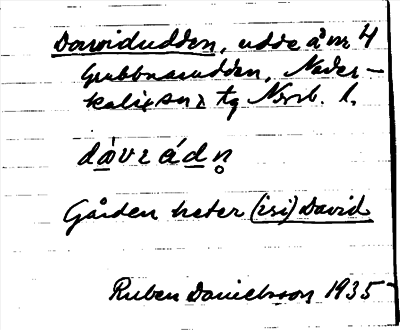 Davidudden, udde å m 4
Grubbnäsudden, Neder-
kalix sn, tg Norrb. l.
dàvɩ ádn̥
Gården heter (isi) David
Ruben Danielsson 1935